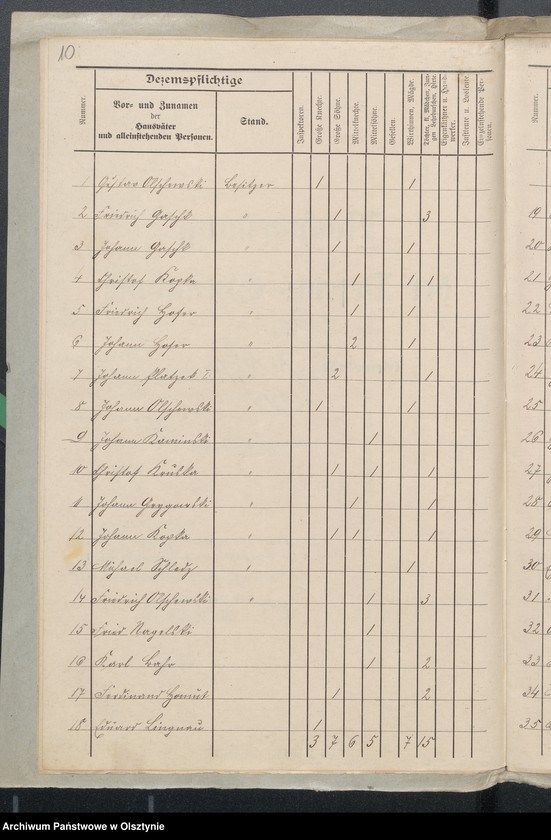 10
Dezemspflichtige
Nummer.
Vor- und Zunamen
der
Hausväter
und alleinstehenden Personen.
Stand.
Inspektoren.
Große Knechte.
Große Söhne.
Mittelknechte.
Mittelsöhne.
Gesellen.
Wirthinnen, Mägde.
Eigenkäthner u. Handwerker.
Instleute u. Losleute.
Einzelstehende Personen.
Nummer.
1 Gustav Olschewski Besitzer 1 1
2 Friedrich Gaschk " 1 3
3 Johann Gaschk " 1 1
4 Christof Kopka " 1 1 1
5 Friedrich Hofer " 1 1
6 Johann Hofer " 2 1
7 Johann Platzek I. " 2 1
8 Johann Olschewski " 1 1
9 Johann Kaminski " 1
10 Christof Kruska " 1 1 1
11 Johann " 1 1
12 Johann Kopka " 1 1 1
13 Michael " 1
14 Friedrich Olschewski " 1 3
15 Fried Nagelski 1
16 Karl Bahr 1 2
17 Ferdinand 1 2
18 Eduard Lingnau 1
3 7 6 5 7 15
19
20
21
22
23
24
25
26
27
28
29
30
31
32
33
34
35
Archiwum Państwowe w Olsztynie